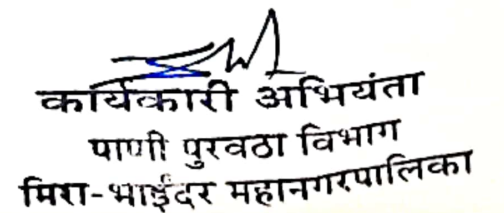 कार्यकारी अभियंता
पाणी पुरवठा विभाग
मिरा-भाईंदर महानगरपालिका